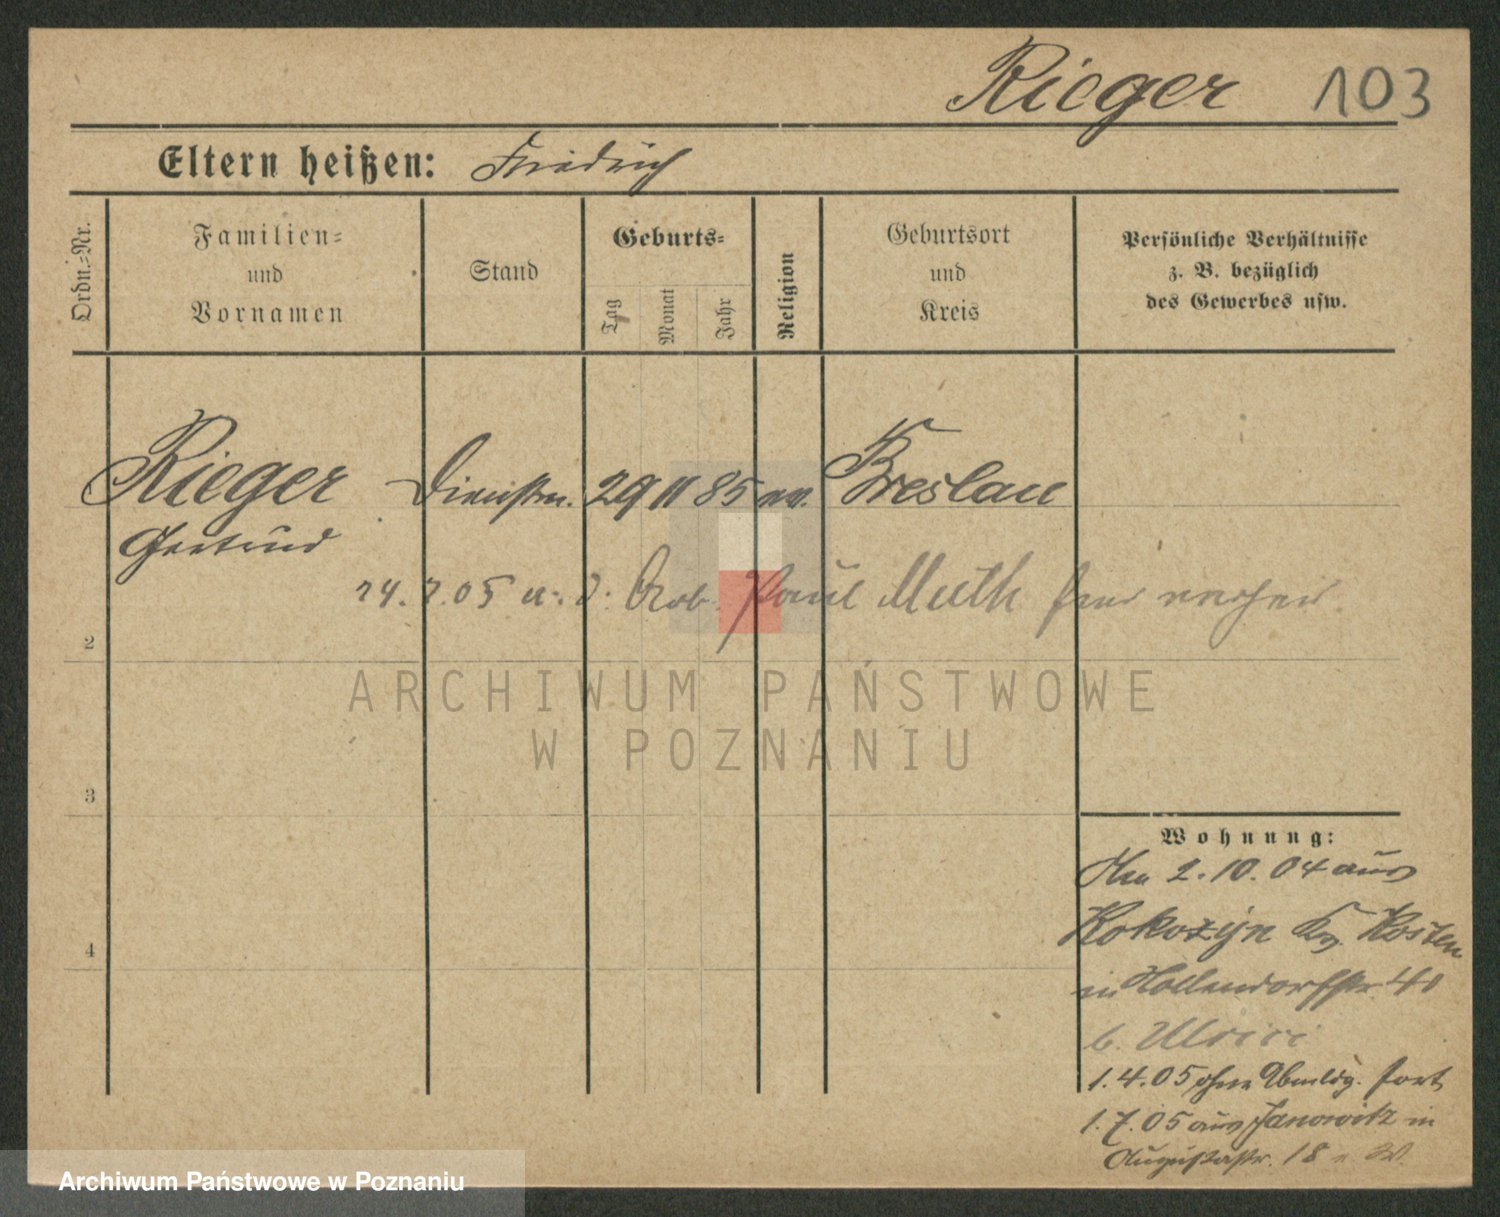 Rieger 103
Eltern heißen: Friedrich
Ordn.=Nr.
Familien=
und
Vornamen
Stand
Geburts=
Tag
Monat
Jahr
Religion
Geburtsort
und
Kreis
Persönliche Verhältnisse
z. B. bezüglich
des Gewerbes usw.
Rieger Dienstm. 29 11 85 ev. Breslau
Gertrud
24. 7. 05 a. d. Arb. Paul Muth
2
ARCHIWUM PAŃSTWOWE
W POZNANIU
3
Wohnung:
2. 10. 04 aus
Kokozyn Kr. Kosten
4
in Hollendorfstr 40
b. Ulrici
1. 4. 05 ohne Abmldg. fort
1. 7. 05 aus Janowitz in
Augustastr. 18
Archiwum Państwowe w Poznaniu